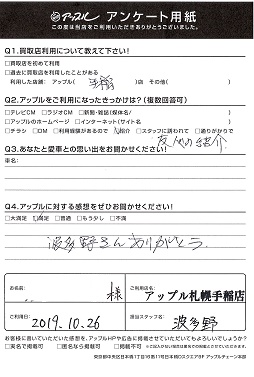 アップル アンケート用紙
この度は当店をご利用いただきありがとうございました。
Q1.買取店利用について教えて下さい!
□買取店を初めて利用
□過去に買取店を利用したことがある
利用した店舗: アップル( 手稲 )店 その他( )
Q2.アップルをご利用になったきっかけは?(複数回答可)
□テレビCM □ラジオCM □新聞・雑誌(媒体名/ )
□アップルのホームページ □インターネット(サイト名 )
□チラシ □DM □利用経験があるので 紹介 □スタッフに誘われて □通りがかりで
友人の紹介
Q3.あなたと愛車との思い出をお聞かせください!
車名:
Q4.アップルに対する感想をぜひお聞かせください!
□大満足 満足 □普通 □もう少し □不満
波多野さんありがとう
お名前: 様
ご利用店名: アップル札幌手稲店
ご利用日: 2019.10.26
担当スタッフ名: 波多野
お客様に書いていただいた感想を、アップルHPや広告に掲載させていただいてもよろしいでしょうか?
□実名で掲載可 □匿名なら掲載可 □掲載不可
東京都中央区日本橋1丁目16番11号日本橋Dスクエア5F アップルチェーン本部